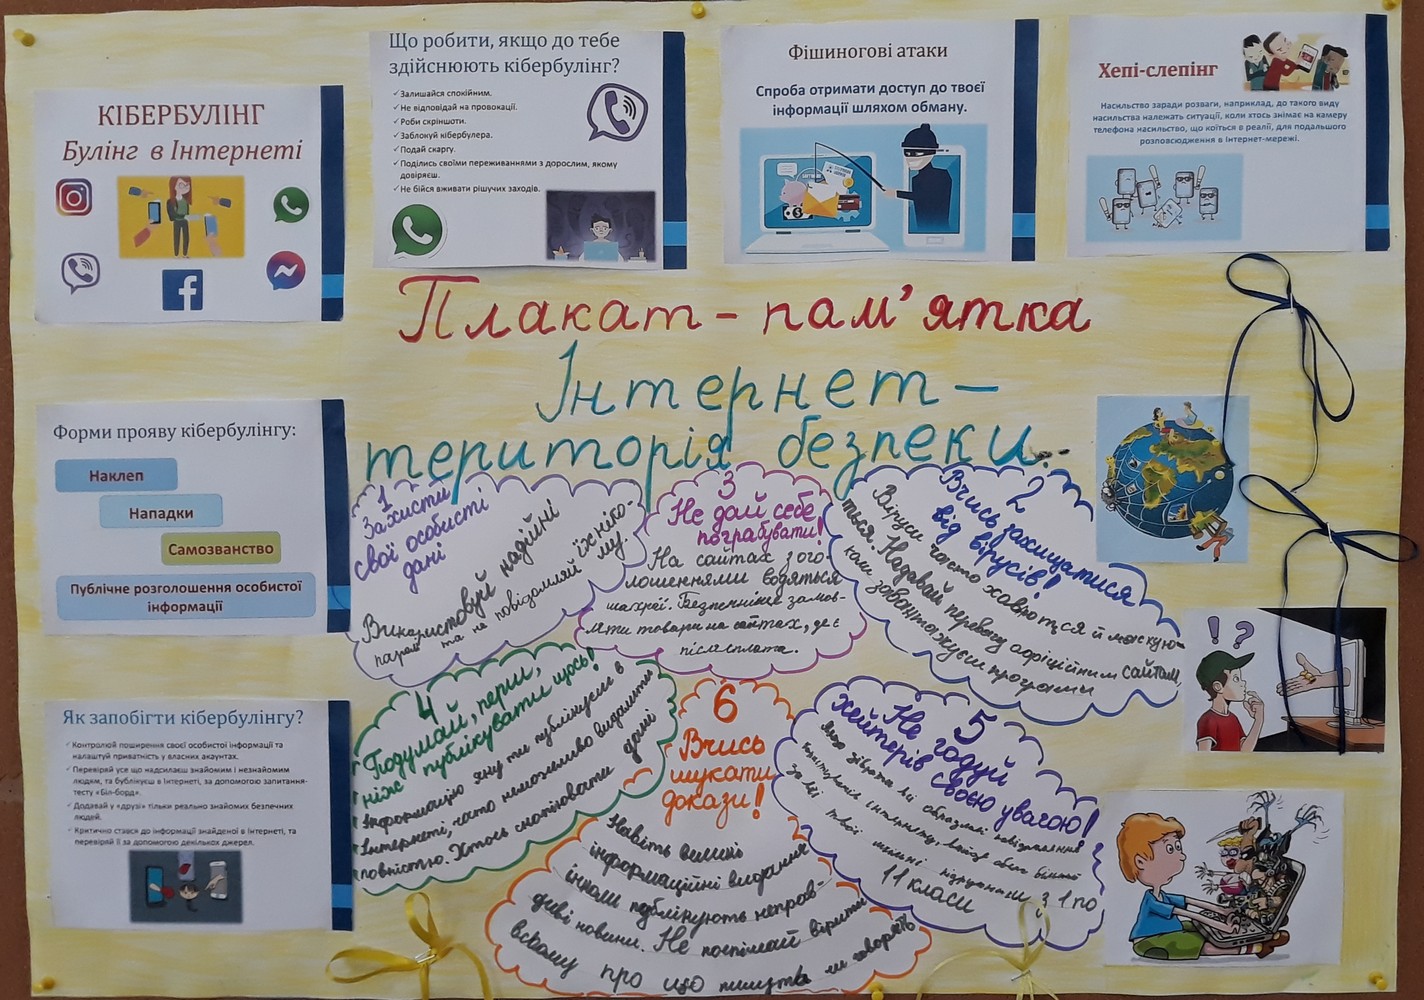 КІБЕРБУЛІНГ
Булінг в Інтернеті
Що робити, якщо до тебе
здійснюють кібербулінг?
Залишайся спокійним.
Не відповідай на провокації.
Роби скріншоти.
Заблокуй кібербулера.
Подай скаргу.
Поділись своїми переживаннями з дорослим, якому
довіряєш.
Не бійся вживати рішучих заходів.
Фішингові атаки
Спроба отримати доступ до твоєї
інформації шляхом обману.
Хепі-слепінг
Насильство заради розваги, наприклад, до такого виду
насильства належать ситуації, коли хтось знімає на камеру
телефона насильство, що коїться в реалії, для подальшого
розповсюдження в Інтернет-мережі.
Плакат - пам'ятка
Інтернет -
територія безпеки.
Форми прояву кібербулінгу:
Наклеп
Нападки
Самозванство
Публічне розголошення особистої
інформації
Як запобігти кібербулінгу?
Контролюй поширення своєї особистої інформації та
налаштуй приватність у власних акаунтах.
Перевіряй усе що надсилаєш знайомим і незнайомим
людям, та публікуєш в Інтернеті, за допомогою запитання-
тесту «Біл-борд».
Додавай у «друзі» тільки реально знайомих безпечних
людей.
Критично стався до інформації знайденої в Інтернеті, та
перевіряй її за допомогою декількох джерел.
1
Захисти
свої особисті
дані
Використовуй надійні
паролі та не повідомляй їх ніко-
му.
3
Не дай себе
пограбувати!
На сайтах з ого-
лошеннями водяться
шахраї. Безпечніше замов-
ляти товари на сайтах, де є
післясплата.
2
Вчись захищатися
від вірусів!
Віруси часто ховаються й маскую-
ться. Надавай перевагу офіційним сайтам,
коли завантажуєш програми
4
Подумай, перш,
ніж публікувати щось!
Інформацію яку ти публікуєш в
Інтернеті, часто неможливо видалити
повністю. Хтось скопіювати дані
6
Вчись
шукати
докази!
Навіть великі
інформаційні видання
інколи публікують неправ-
диві новини. Не поспішай вірити
всьому про що пишуть чи говорять
5
Не годуй
хейтерів своєю увагою!
образливі повідомлення
твої
11 класи з 1 по
! ?